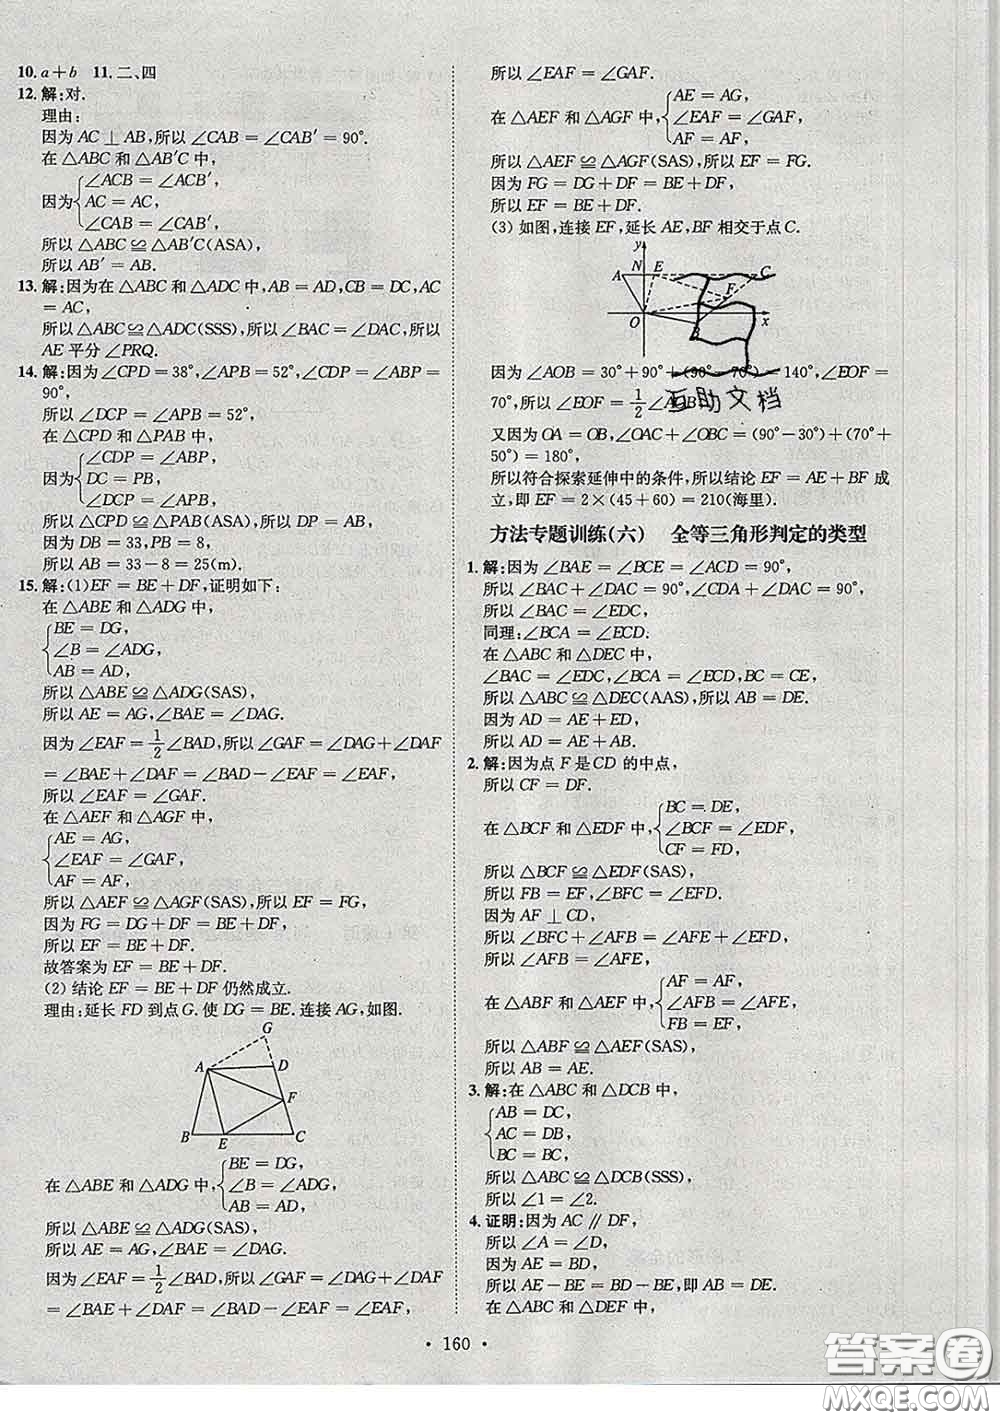 10. a+b 11. 二、四
12. 解:对.
理由:
因为 AC ⊥ AB,所以 ∠CAB = ∠CAB′ = 90°.
在 △ABC 和 △AB′C 中,
因为{∠ACB = ∠ACB′,
AC = AC,
∠CAB = ∠CAB′,
所以 △ABC ≌ △AB′C(ASA),
所以 AB′ = AB.
13. 解:因为在 △ABC 和 △ADC 中,AB = AD,CB = DC,AC
= AC,
所以 △ABC≌△ADC(SSS),所以 ∠BAC = ∠DAC,所以
AE 平分 ∠PRQ.
14. 解:因为 ∠CPD = 38°,∠APB = 52°,∠CDP = ∠ABP =
90°,
所以 ∠DCP = ∠APB = 52°,
在 △CPD 和 △PAB 中,
因为{∠CDP = ∠ABP,
DC = PB,
∠DCP = ∠APB,
所以 △CPD ≌ △PAB(ASA),所以 DP = AB,
因为 DB = 33,PB = 8,
所以 AB = 33 − 8 = 25(m).
15. 解:(1)EF = BE + DF,证明如下:
在 △ABE 和 △ADG 中,
{BE = DG,
∠B = ∠ADG,
AB = AD,
所以 △ABE ≌ △ADG(SAS),
所以 AE = AG,∠BAE = ∠DAG.
因为 ∠EAF = 1/2 ∠BAD,所以 ∠GAF = ∠DAG + ∠DAF
= ∠BAE + ∠DAF = ∠BAD − ∠EAF = ∠EAF,
所以 ∠EAF = ∠GAF.
在 △AEF 和 △AGF 中,
{AE = AG,
∠EAF = ∠GAF,
AF = AF,
所以 △AEF ≌ △AGF(SAS),所以 EF = FG,
因为 FG = DG + DF = BE + DF,
所以 EF = BE + DF.
故答案为 EF = BE + DF.
(2) 结论 EF = BE + DF 仍然成立.
理由:延长 FD 到点 G. 使 DG = BE. 连接 AG,如图.
G
A
D
F
B
E
C
在 △ABE 和 △ADG 中,{BE = DG,
∠B = ∠ADG,
AB = AD,
所以 △ABE ≌ △ADG(SAS),
所以 AE = AG,∠BAE = ∠DAG.
因为 ∠EAF = 1/2 ∠BAD,所以 ∠GAF = ∠DAG + ∠DAF
= ∠BAE + ∠DAF = ∠BAD − ∠EAF = ∠EAF,
所以 ∠EAF = ∠GAF.
在 △AEF 和 △AGF 中,{AE = AG,
∠EAF = ∠GAF,
AF = AF,
所以 △AEF ≌ △AGF(SAS),所以 EF = FG.
因为 FG = DG + DF = BE + DF,
所以 EF = BE + DF.
(3) 如图,连接 EF,延长 AE,BF 相交于点 C.
y
A
N
E
C
F
O
B
x
因为 ∠AOB = 30° + 90° + (90° − 70°) = 140°,∠EOF =
70°,所以 ∠EOF = 1/2 ∠AOB
互助文档
又因为 OA = OB,∠OAC + ∠OBC = (90° − 30°) + (70° +
50°) = 180°,
所以符合探索延伸中的条件,所以结论 EF = AE + BF 成
立,即 EF = 2 × (45 + 60) = 210(海里).
方法专题训练(六) 全等三角形判定的类型
1. 解:因为 ∠BAE = ∠BCE = ∠ACD = 90°,
所以 ∠BAC + ∠DAC = 90°,∠CDA + ∠DAC = 90°,
所以 ∠BAC = ∠EDC,
同理:∠BCA = ∠ECD.
在 △ABC 和 △DEC 中,
∠BAC = ∠EDC,∠BCA = ∠ECD,BC = CE,
所以 △ABC ≌ △DEC(AAS),所以 AB = DE.
因为 AD = AE + ED,
所以 AD = AE + AB.
2. 解:因为点 F 是 CD 的中点,
所以 CF = DF.
在 △BCF 和 △EDF 中,{BC = DE,
∠BCF = ∠EDF,
CF = FD,
所以 △BCF ≌ △EDF(SAS),
所以 FB = EF,∠BFC = ∠EFD.
因为 AF ⊥ CD,
所以 ∠BFC + ∠AFB = ∠EFD + ∠AFE,
所以 ∠AFB = ∠AFE,
在 △ABF 和 △AEF 中,{AF = AF,
∠AFB = ∠AFE,
FB = EF,
所以 △ABF ≌ △AEF(SAS),
所以 AB = AE.
3. 解:在 △ABC 和 △DCB 中,
{AB = DC,
AC = DB,
BC = BC,
所以 △ABC ≌ △DCB(SSS),
所以 ∠1 = ∠2.
4. 证明:因为 AC ∥ DF,
所以 ∠A = ∠D,
因为 AE = BD,
所以 AE − BE = BD − BE,即 AB = DE.
在 △ABC 和 △DEF 中,
• 160 •
答案圈
MXQE.COM